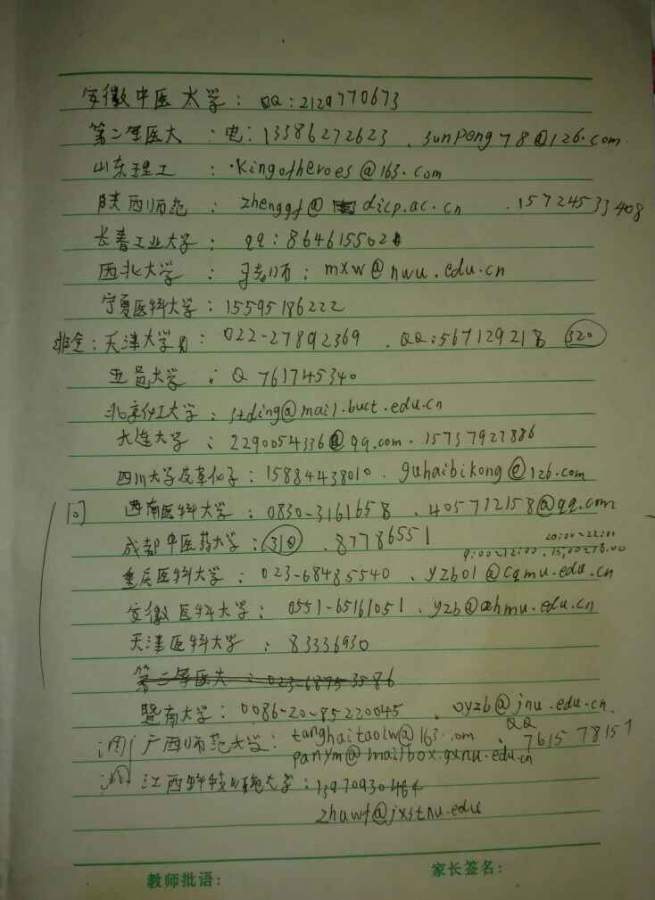 安徽中医大学：QQ:2129770673
第二军医大：电:13386272623、sunpeng78@126.com
山东理工：kingofheroes@163.com
陕西师范：zhenggf@dicp.ac.cn .15724533408
长春工业大学：qq:864615502
西北大学：老师:mxw@nwu.edu.cn
宁夏医科大学:15595186222
非全:天津大学:022-27892369 .QQ:567129218 320
大学：Q 761745340
北京化工大学:stding@mail.buct.edu.cn
大连大学：2290054336@qq.com.15737927886
四川大学皮革化学:15884438010.guhaibikong@126.com
问 西南医科大学:0830-3161658.405712158@qq.com
成都中医药大学:310 .87786551
20:00-22:00
9:00-12:00.15:00-18:00
重庆医科大学:023-68485540.yzb01@cqmu.edu.cn
安徽医科大学:0551-65161051.yzb@ahmu.edu.cn
天津医科大学：83336930
第三军医大：023-68753586
暨南大学:0086-20-85220045 .oyzb@jnu.edu.cn
广西师范大学:tanghaitaolw@163.com QQ 761578151
panym@mailbox.gxnu.edu.cn
江西科技师范大学:13970930464
zhawf@jxstnu.edu
教师批语: 家长签名: